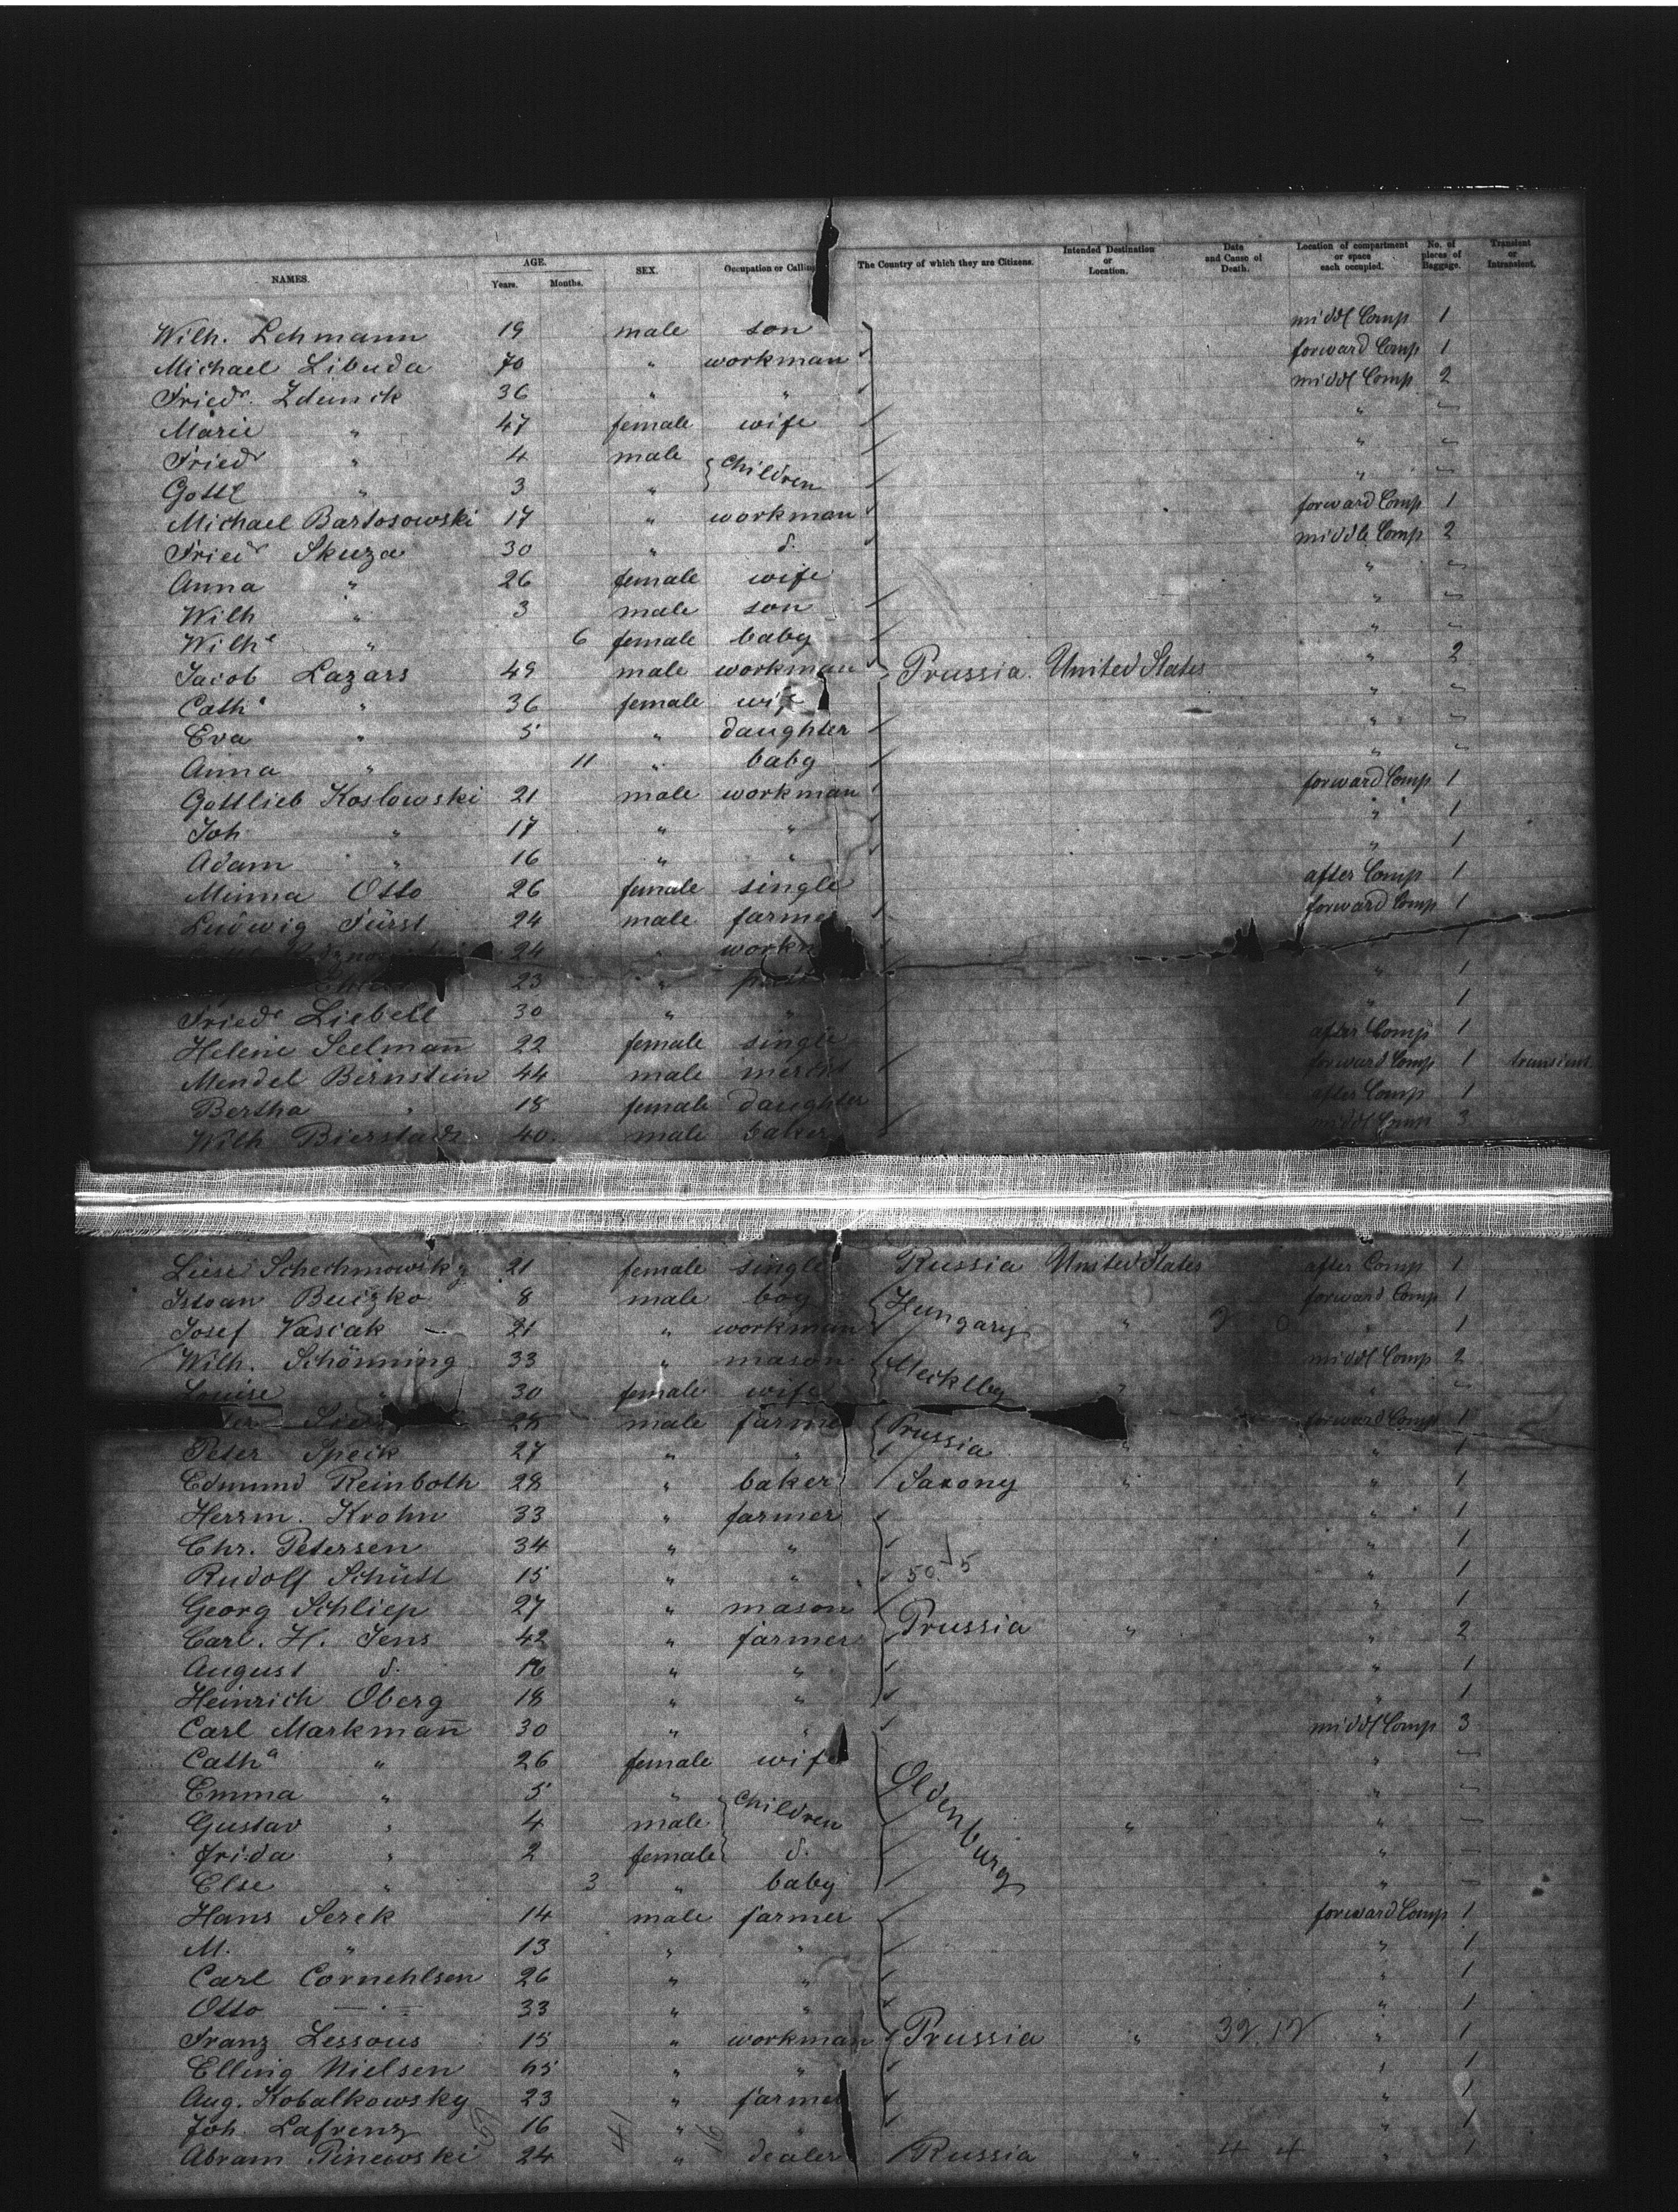 NAMES. AGE. Years. Months. SEX. Occupation or Calling The Country of which they are Citizens. Intended Destination or Location. Date and Cause of Death. Location of compartment or space each occupied. No. of pieces of Baggage. Transient or Intransient.
Wilh. Lehmann 19 male son middl Comp 1
Michael Libuda 70 " workman forward Comp 1
Friedr. 36 " " middl Comp 2
Marie " 47 female wife " "
Friedr " 4 male } Children " "
Gottl " 3 " " "
Michael Bartosowski 17 " workman forward Comp 1
Friedr Skuza 30 " d. middle Comp 2
Anna " 26 female wife " "
Wilh " 3 male son " "
Wilhe " 6 female baby " "
Jacob Lazars 49 male workman Prussia. United States " 2
Catha " 36 female wife " "
Eva " 5 " daughter " "
Anna " 11 " baby " "
Gottlieb Koslowski 21 male workman forward Comp 1
Joh " 17 " " " 1
Adam " 16 " " " 1
Minna Otto 26 female single after Comp 1
Ludwig Fürst 24 male farmer forward Comp 1
24 " workm 1
23 " " 1
Friedr Liebelt 30 " " " 1
Helene Seelman̅ 22 female single after Comp 1
Mendel Bernstein 44 male mercht forward Comp 1 transient
Bertha " 18 female daughter after Comp 1
Wilh Bierstadt 40. male baker middl Comp 3
Liese Schechmowsky 21 female single Russia United States after Comp 1
Istvan Buczko 8 male boy { Hungary forward Comp 1
Josef Vasciak 21 " workman " " 1
Wilh. Schönning 33 " mason { Mecklbg middl Comp 2
Louise " 30 female wife " " "
28 male farmer { Prussia forward Comp 1
Peter Speck 27 " " " " 1
Edmund Reinboth 28 " baker Saxony " " 1
Herrm. Krohn 33 " farmer " 1
Chr. Petersen 34 " " " 1
Rudolf Schütt 15 " " " 1
Georg Schliep 27 " mason " 1
Carl. H. Jens 42 " farmer Prussia " " 2
August d. 16 " " " 1
Heinrich Oberg 18 " " " 1
Carl Markman̅ 30 " " middl Comp 3
Catha " 26 female wife " "
Emma " 5 " } Children Oldenburg " "
Gustav " 4 male " " "
Frida " 2 female d. " "
Else " 3 " baby " "
Hans Serek 14 male farmer forward Comp 1
M. " 13 " " " 1
Carl Cornehlsen 26 " " " 1
Otto " 33 " " " 1
Franz Lessous 15 " workman Prussia " " 1
Elling Nielsen 65 " " " 1
Aug. Kobalkowsky 23 " farmer " 1
Joh. Lafrenz 16 " " " 1
Abram Pinewski 24 " dealer Russia " 4 4 " 1